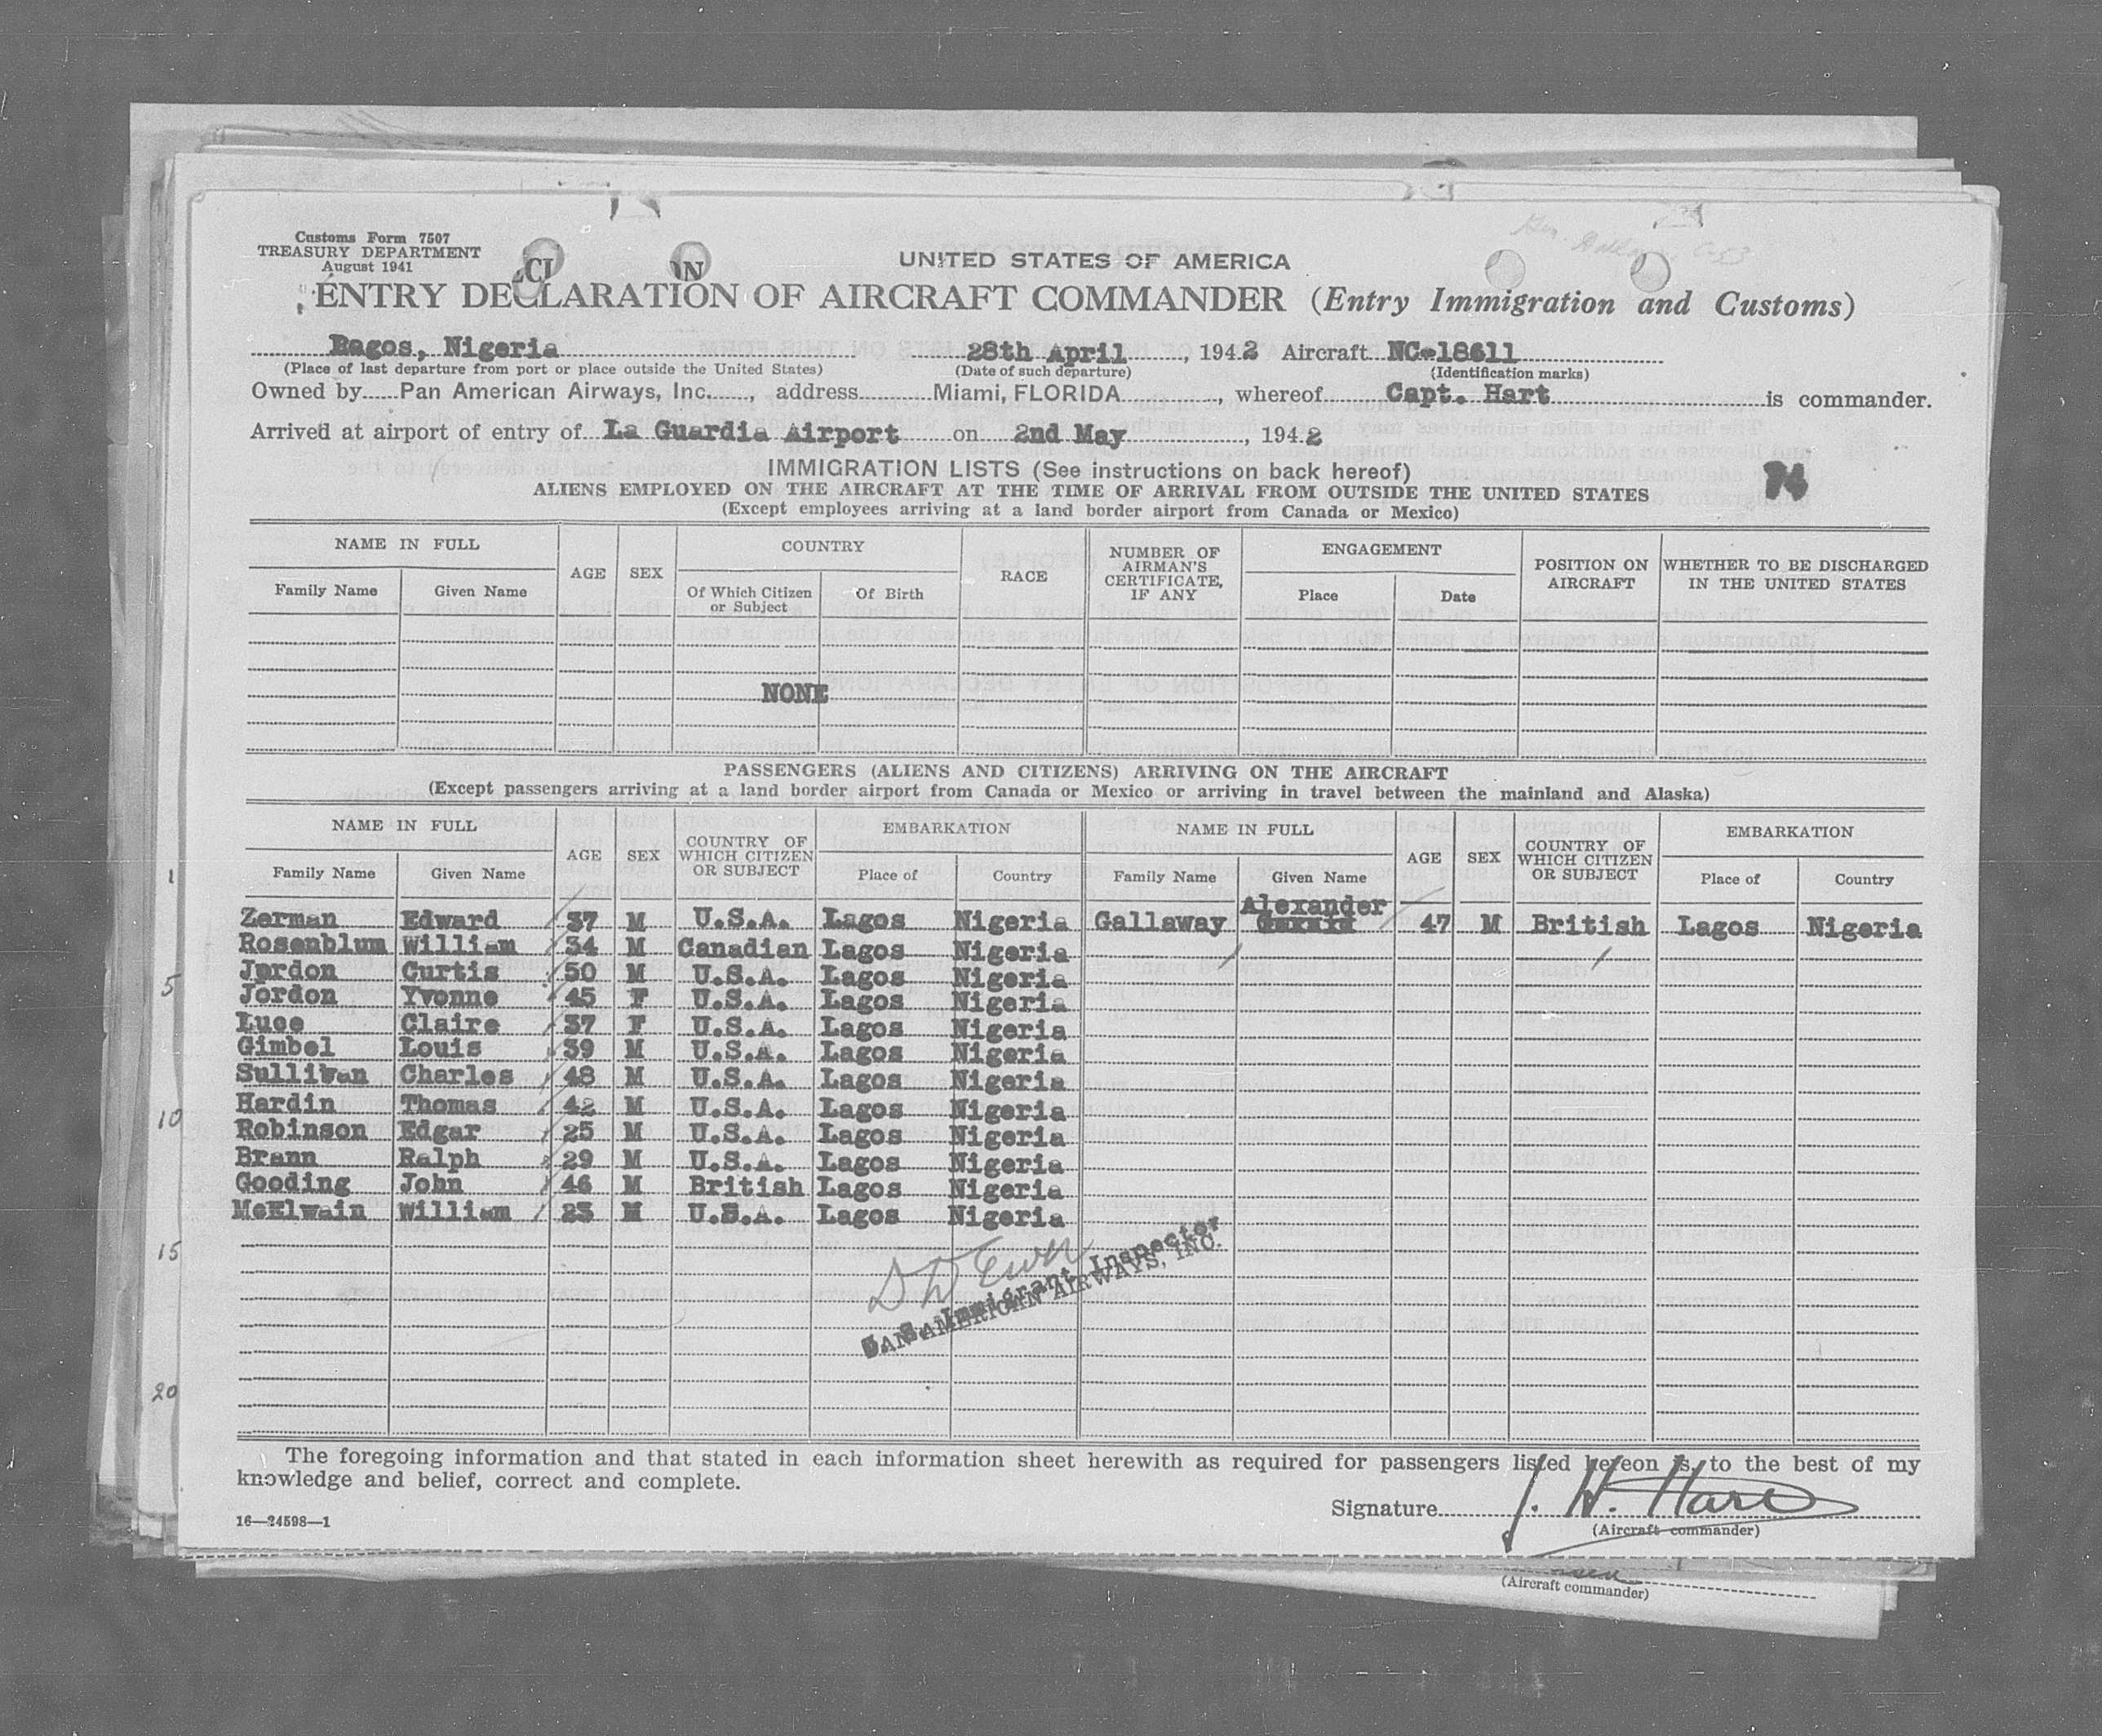 Customs Form 7507
TREASURY DEPARTMENT
August 1941
UNITED STATES OF AMERICA
ENTRY DECLARATION OF AIRCRAFT COMMANDER (Entry Immigration and Customs)
Bagos, Nigeria 28th April, 1942 Aircraft NC-18611
(Place of last departure from port or place outside the United States) (Date of such departure) (Identification marks)
Owned by Pan American Airways, Inc., address Miami, FLORIDA, whereof Capt. Hart is commander.
Arrived at airport of entry of La Guardia Airport on 2nd May, 1942
IMMIGRATION LISTS (See instructions on back hereof) 74
ALIENS EMPLOYED ON THE AIRCRAFT AT THE TIME OF ARRIVAL FROM OUTSIDE THE UNITED STATES
(Except employees arriving at a land border airport from Canada or Mexico)
NAME IN FULL AGE SEX COUNTRY RACE NUMBER OF AIRMAN'S CERTIFICATE, IF ANY ENGAGEMENT POSITION ON AIRCRAFT WHETHER TO BE DISCHARGED IN THE UNITED STATES
Family Name Given Name Of Which Citizen or Subject Of Birth Place Date
NONE
PASSENGERS (ALIENS AND CITIZENS) ARRIVING ON THE AIRCRAFT
(Except passengers arriving at a land border airport from Canada or Mexico or arriving in travel between the mainland and Alaska)
NAME IN FULL AGE SEX COUNTRY OF WHICH CITIZEN OR SUBJECT EMBARKATION NAME IN FULL AGE SEX COUNTRY OF WHICH CITIZEN OR SUBJECT EMBARKATION
Family Name Given Name Place of Country Family Name Given Name Place of Country
Zerman Edward 37 M U.S.A. Lagos Nigeria Gallaway Alexander 47 M British Lagos Nigeria
Rosenblum William 34 M Canadian Lagos Nigeria
Jordon Curtis 50 M U.S.A. Lagos Nigeria
Jordon Yvonne 45 F U.S.A. Lagos Nigeria
Luce Claire 37 F U.S.A. Lagos Nigeria
Gimbel Louis 39 M U.S.A. Lagos Nigeria
Sullivan Charles 48 M U.S.A. Lagos Nigeria
Hardin Thomas 42 M U.S.A. Lagos Nigeria
Robinson Edgar 25 M U.S.A. Lagos Nigeria
Brann Ralph 29 M U.S.A. Lagos Nigeria
Gooding John 46 M British Lagos Nigeria
McElwain William 23 M U.S.A. Lagos Nigeria
1
5
10
15
20
U. S. Immigrant Inspector
PAN AMERICAN AIRWAYS, INC.
The foregoing information and that stated in each information sheet herewith as required for passengers listed hereon is, to the best of my
knowledge and belief, correct and complete.
Signature J. H. Hart
(Aircraft commander)
16—24598—1
(Aircraft commander)